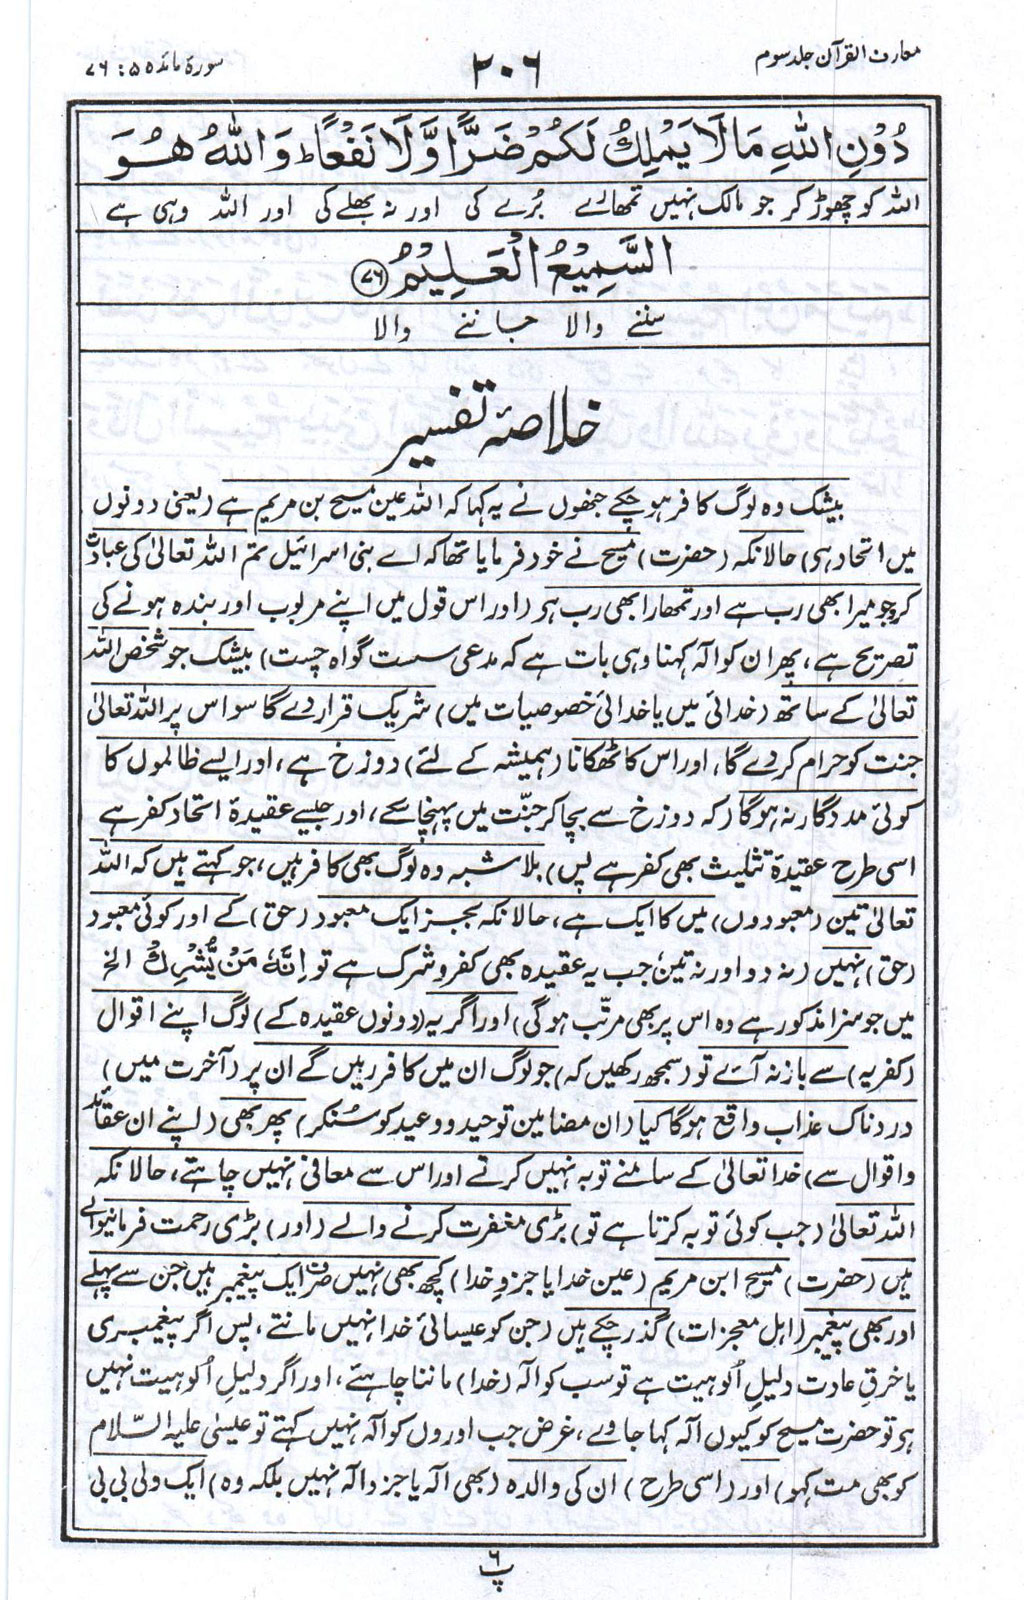 معارف القرآن جلد سوم
۲۰۶
سورۂ مائدہ ۵ : ۷۶
دُوْنِ اللّٰهِ مَا لَا يَمْلِكُ لَكُمْ ضَرًّا وَّلَا نَفْعًا ؕ وَاللّٰهُ هُوَ
اللہ کو چھوڑ کر جو مالک نہیں تمھارے بُرے کی اور نہ بھلے کی اور اللہ وہی ہے
السَّمِيْعُ الْعَلِيْمُ ۷۶
سننے والا جاننے والا
خلاصۂ تفسیر
بیشک وہ لوگ کافر ہو چکے جنھوں نے یہ کہا کہ اللہ عین مسیح بن مریم ہے (یعنی دونوں
میں اتحاد ہی) حالانکہ (حضرت) مسیح نے خود فرمایا تھا کہ اے بنی اسرائیل تم اللہ تعالیٰ کی عبادت
کرو جو میرا بھی رب ہے اور تمھارا بھی رب ہی (اور اس قول میں اپنے مربوب اور بندہ ہونے کی
تصریح ہے، پھر ان کو الٰہ کہنا وہی بات ہے کہ مدعی سست گواہ چست) بیشک جو شخص اللہ
تعالیٰ کے ساتھ (خدائی میں یا خدائی خصوصیات میں) شریک قرار دے گا سو اس پر اللہ تعالیٰ
جنت کو حرام کر دے گا، اور اس کا ٹھکانا (ہمیشہ کے لئے) دوزخ ہے، اور ایسے ظالموں کا
کوئی مددگار نہ ہوگا (کہ دوزخ سے بچا کر جنّت میں پہنچا سکے، اور جیسے عقیدۂ اتحاد کفر ہے
اسی طرح عقیدۂ تثلیث بھی کفر ہے پس) بلا شبہ وہ لوگ بھی کافر ہیں، جو کہتے ہیں کہ اللہ
تعالیٰ تین (معبودوں) میں کا ایک ہے، حالانکہ بجز ایک معبود (حق) کے اور کوئی معبود
(حق) نہیں (نہ دو اور نہ تین، جب یہ عقیدہ بھی کفر و شرک ہے تو اِنَّهٗ مَنْ يُّشْرِكْ الخ
میں جو سزا مذکور ہے وہ اس پر بھی مرتب ہوگی) اور اگر یہ (دونوں عقیدہ کے) لوگ اپنے اقوال
(کفریہ) سے باز نہ آئے تو (سمجھ رکھیں کہ) جو لوگ ان میں کافر رہیں گے ان پر (آخرت میں)
دردناک عذاب واقع ہوگا کیا (ان مضامین توحید و وعید کو سُنکر) پھر بھی (اپنے ان عقائد
و اقوال سے) خدا تعالیٰ کے سامنے توبہ نہیں کرتے اور اس سے معافی نہیں چاہتے، حالانکہ
اللہ تعالیٰ (جب کوئی توبہ کرتا ہے تو) بڑی مغفرت کرنے والے (اور) بڑی رحمت فرمانیوالے
ہیں (حضرت) مسیح ابن مریم (عین خدا یا جزوِ خدا) کچھ بھی نہیں صرف ایک پیغمبر ہیں جن سے پہلے
اور بھی پیغمبر (اہل معجزات) گذر چکے ہیں (جن کو عیسائی خدا نہیں مانتے، پس اگر پیغمبری
یا خرقِ عادت دلیلِ اُلوہیت ہے تو سب کو الٰہ (خدا) ماننا چاہئے، اور اگر دلیلِ اُلوہیت نہیں
ہی تو حضرت مسیح کو کیوں الٰہ کہا جاوے، غرض جب اوروں کو الٰہ نہیں کہتے تو عیسیٰ علیہ السّلام
کو بھی مت کہو) اور (اسی طرح) ان کی والدہ (بھی الٰہ یا جزو الٰہ نہیں بلکہ وہ) ایک ولی بی بی
پ ۶